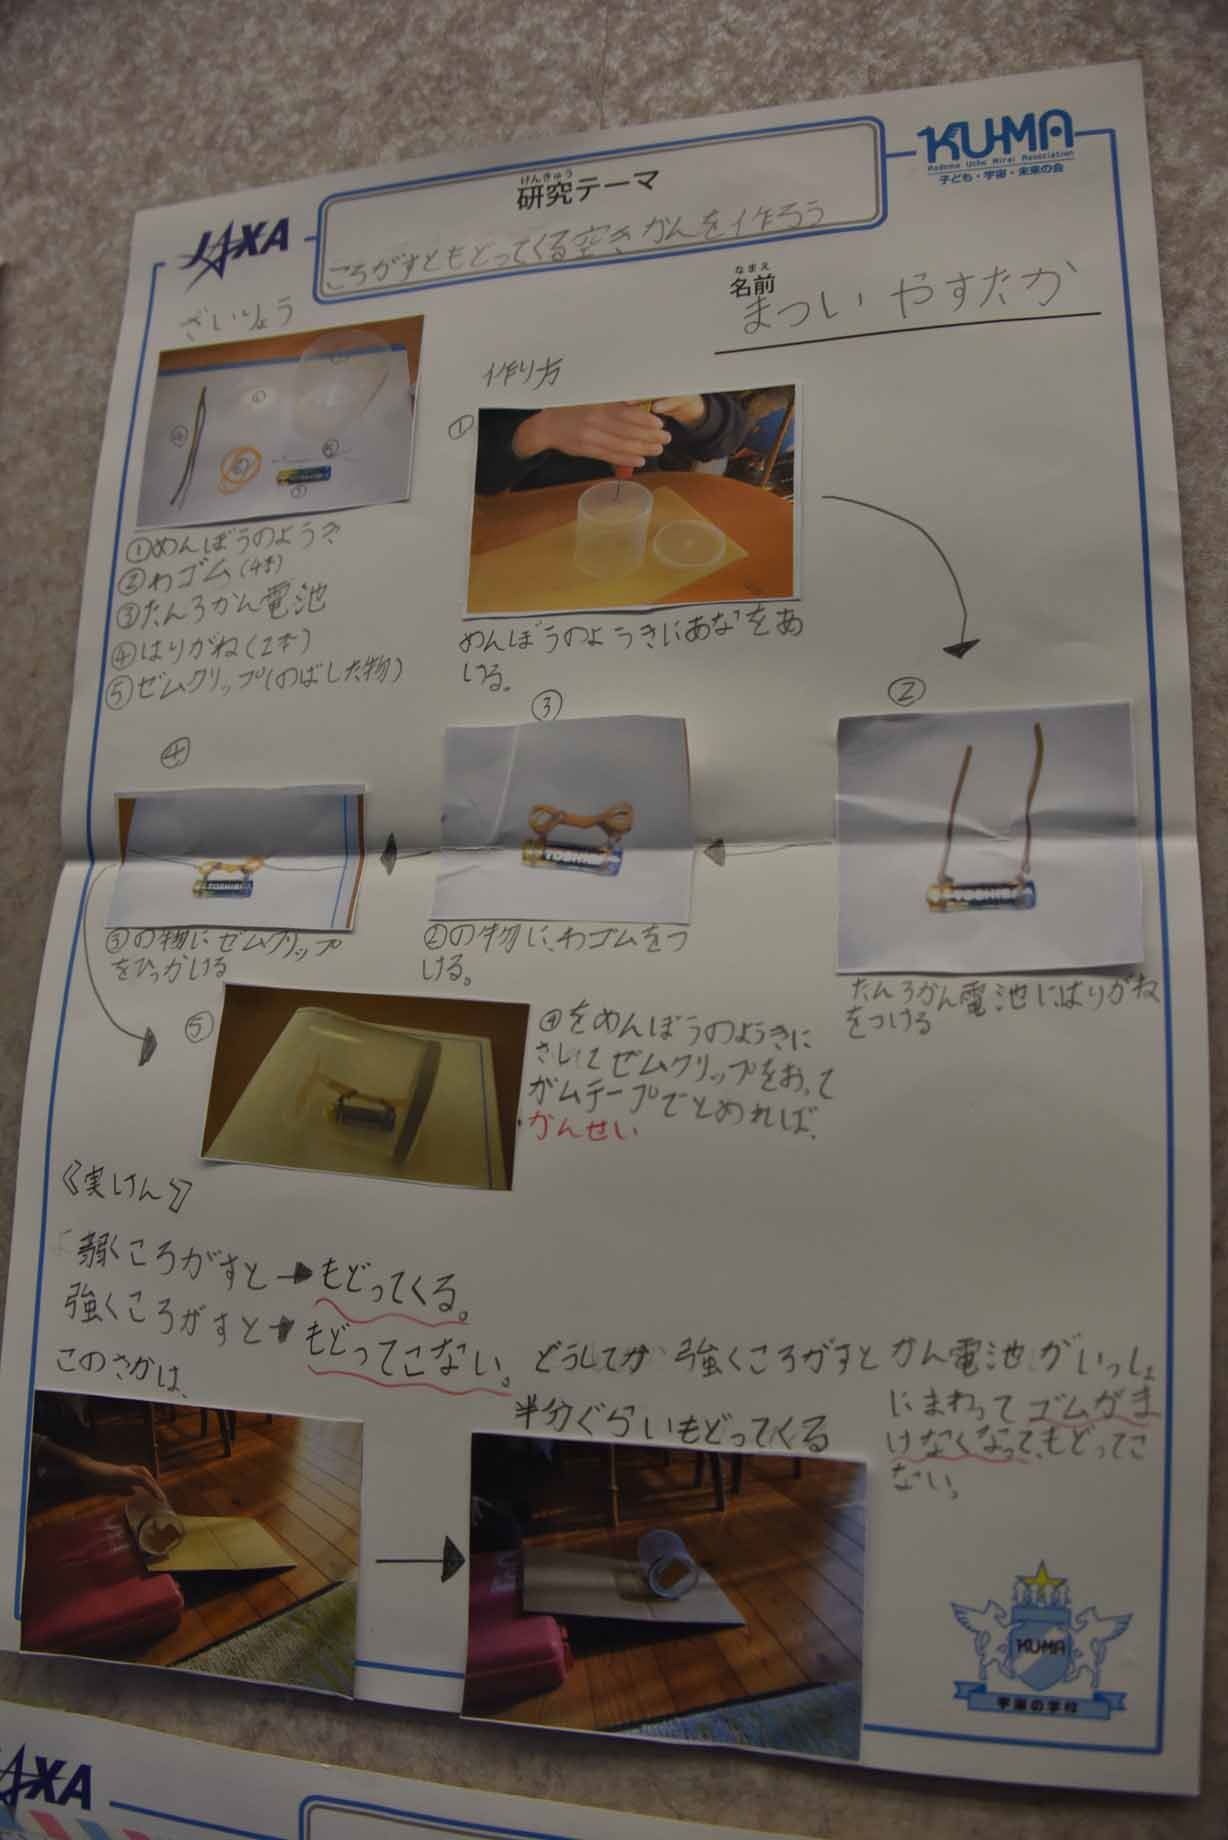 JAXA
けんきゅう
研究テーマ
ころがすともどってくる空きかんを作ろう
KU-MA
Kodomo Uchu Mirai Association
子ども・宇宙・未来の会
なまえ
名前
まつい やすたか
ざいりょう
①めんぼうのようき
②わゴム(4本)
③たんろかん電池
④はりがね(2本)
⑤ゼムクリップ(のばした物)
作り方
①
めんぼうのようきにあなをあ
ける。
②
TOSHIBA
たんろかん電池にはりがね
をつける
③
TOSHIBA
②の物に、わゴムをつ
ける。
④
TOSHIBA
③の物にゼムクリップ
をひっかける
⑤
④をめんぼうのようきに
さしてゼムクリップをおって
ガムテープでとめれば、
かんせい
《実けん》
弱くころがすと→もどってくる。
強くころがすと→もどってこない。
どうしてか 強くころがすと かん電池がいっしょ
にまわってゴムがま
けなくなって、もどってこ
ない。
このさかは、
半分ぐらいもどってくる
KU-MA
宇宙の学校
JAXA